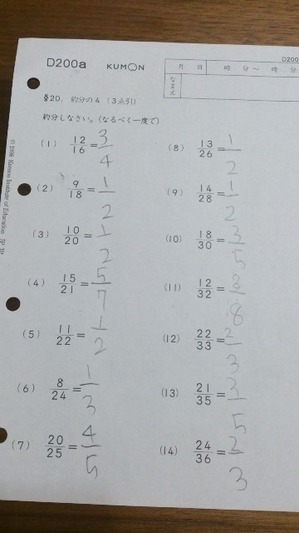 D200a KUMON
D200
月 日 時 分～ 時
なまえ
§20. 約分の4 (3点引)
約分しなさい。(なるべく一度で)
(1) 12/16 = 3/4
(2) 9/18 = 1/2
(3) 10/20 = 1/2
(4) 15/21 = 5/7
(5) 11/22 = 1/2
(6) 8/24 = 1/3
(7) 20/25 = 4/5
(8) 13/26 = 1/2
(9) 14/28 = 1/2
(10) 18/30 = 3/5
(11) 12/32 = 3/8
(12) 22/33 = 2/3
(13) 21/35 = 3/5
(14) 24/36 = 2/3
Kumon Institute of Education